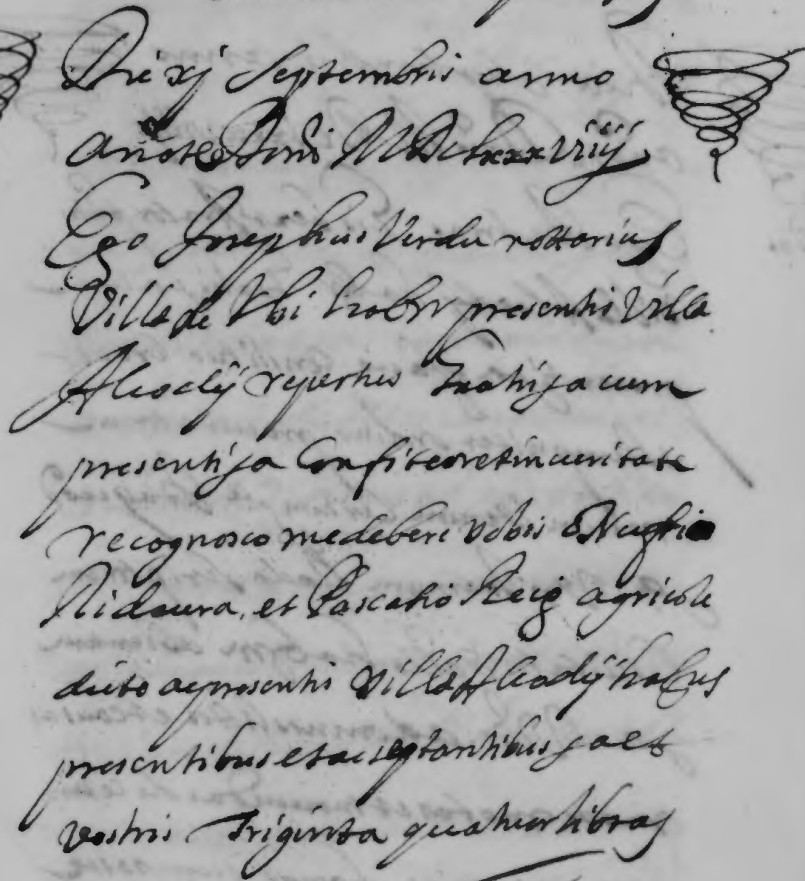 Die xj Septembris anno
Anōte Domi MDClxxxviiij
Ego Josephus Verdu nottarius
Villa de Ibi habr presentis Villa
Alcodij repertus Gratis ja cum
presenti ja Confiteor et in veritate
recognosco me debere vobis
Ridaura, et Pascatio Reig agricole
dicto a presentis Villa Alcodij habus
presentibus et aceptantibus ja et
vostris Triginta quatuor libras